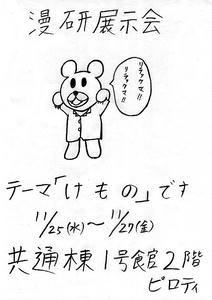 漫研展示会
リラックマ!!
リラックマ!!
テーマ「けもの」です
11/25(水)〜11/27(金)
共通棟1号館2階
ピロティ